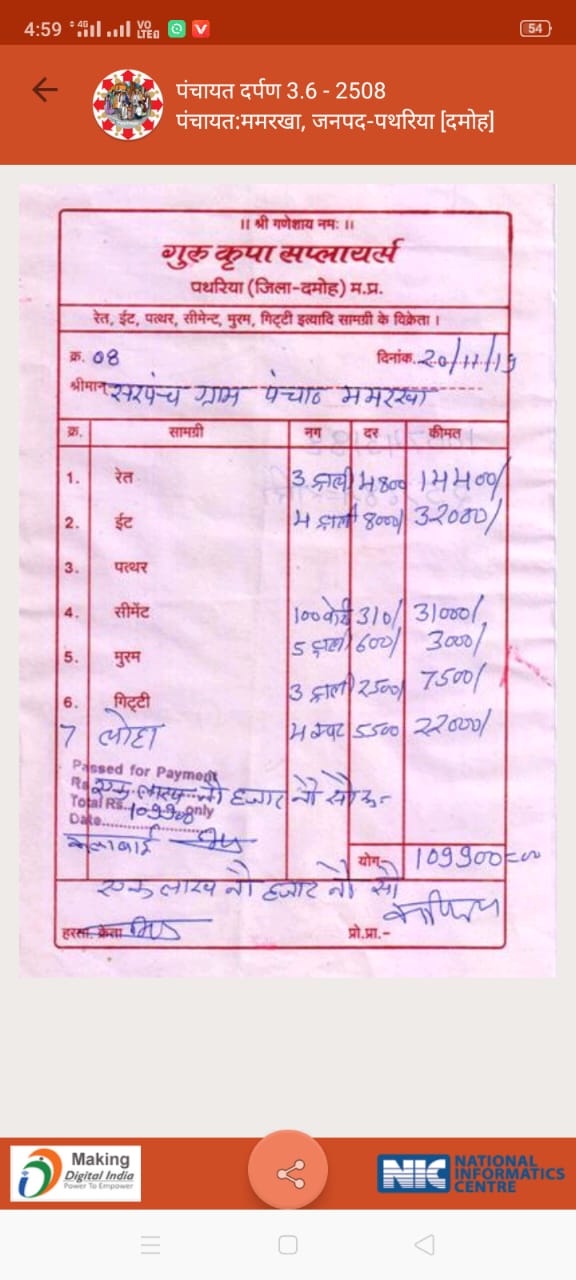 4:59 4G VO LTE 54
पंचायत दर्पण 3.6 - 2508
पंचायत:ममरखा, जनपद-पथरिया [दमोह]
।। श्री गणेशाय नमः ।।
गुरु कृपा सप्लायर्स
पथरिया (जिला-दमोह) म.प्र.
रेत, ईट, पत्थर, सीमेन्ट, मुरम, गिट्टी इत्यादि सामग्री के विक्रेता ।
क्र. 08 दिनांक 20/11/19
श्रीमान् सरपंच ग्राम पंचा० ममरखा
क्र. सामग्री नग दर कीमत
1. रेत 3 ट्राली 4800 14400/
2. ईट 4 ट्राली 8000/ 32000/
3. पत्थर
4. सीमेंट 100 310/ 31000/
5. मुरम 5 ट्राली 600/ 3000/
6. गिट्टी 3 ट्राली 2500/ 7500/
7 लोहा 4 5500 22000/
Passed for Payment
Rs एक लाख नौ हजार नौ सौ रू=
Total Rs. 109900 only
Date
कलाबाई
योग 109900=00
एक लाख नौ हजार नौ सौ
हस्ता. क्रेता प्रो.प्रा.-
Making
Digital India
Power To Empower
NIC NATIONAL
INFORMATICS
CENTRE